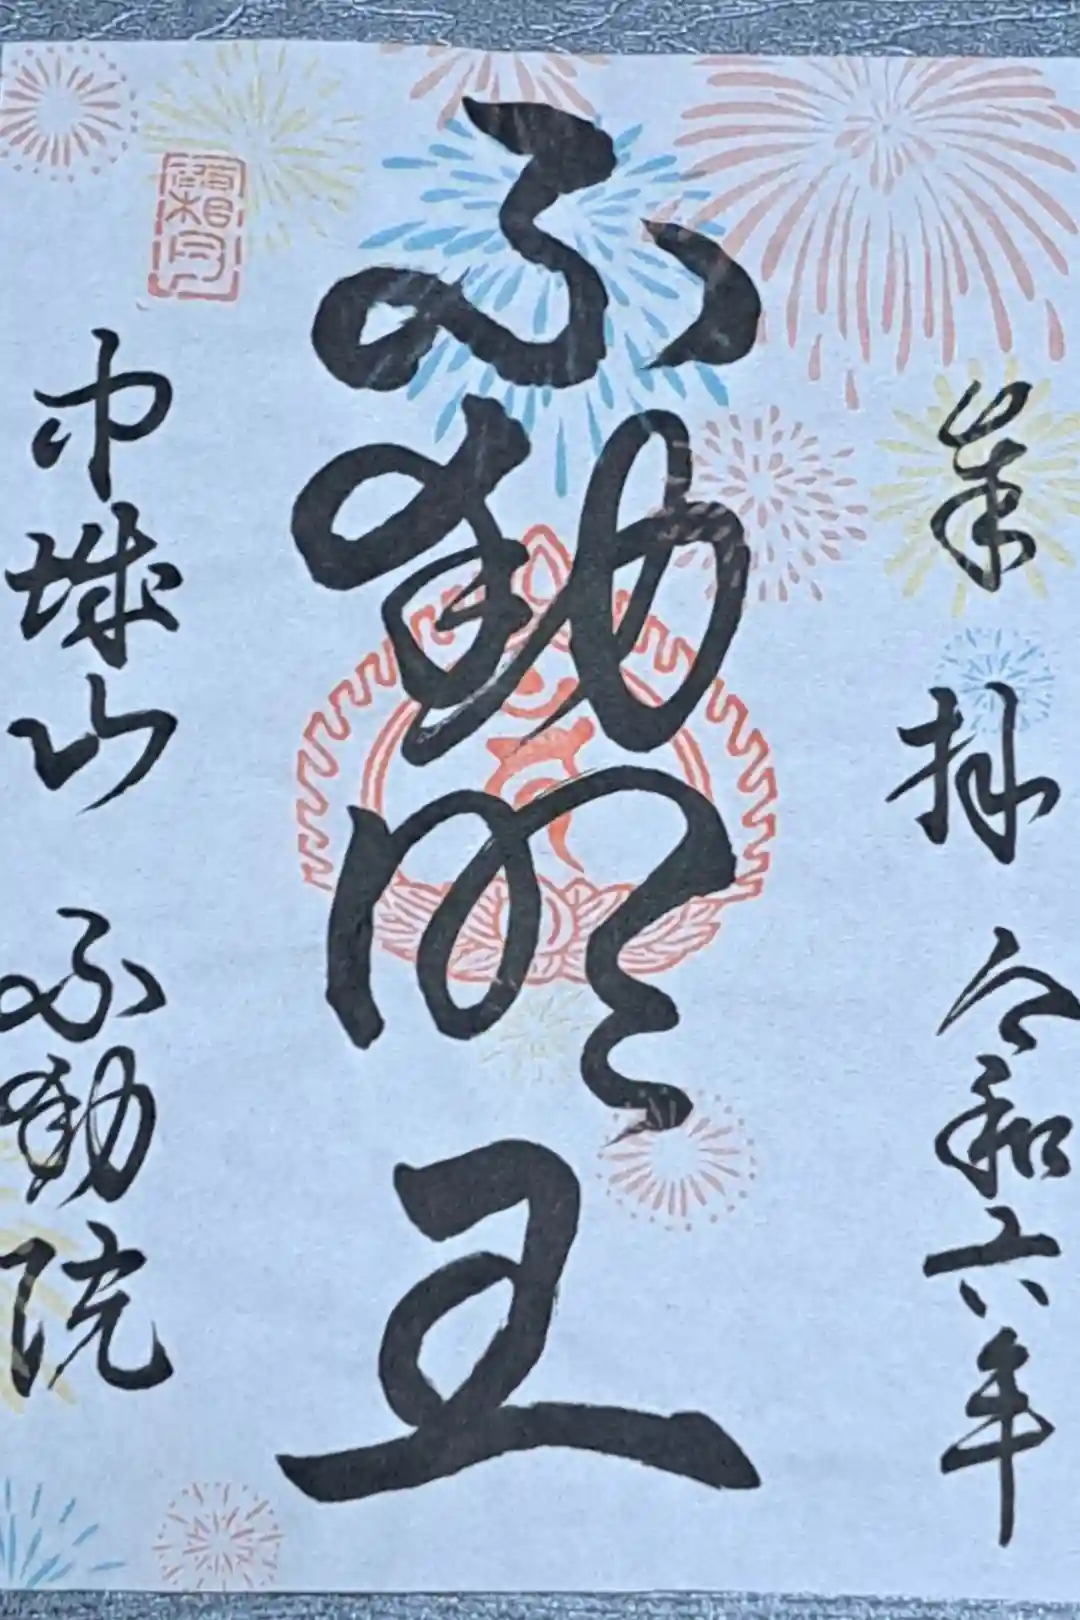 奉拝 令和六年
不動明王
巾城山 不動院